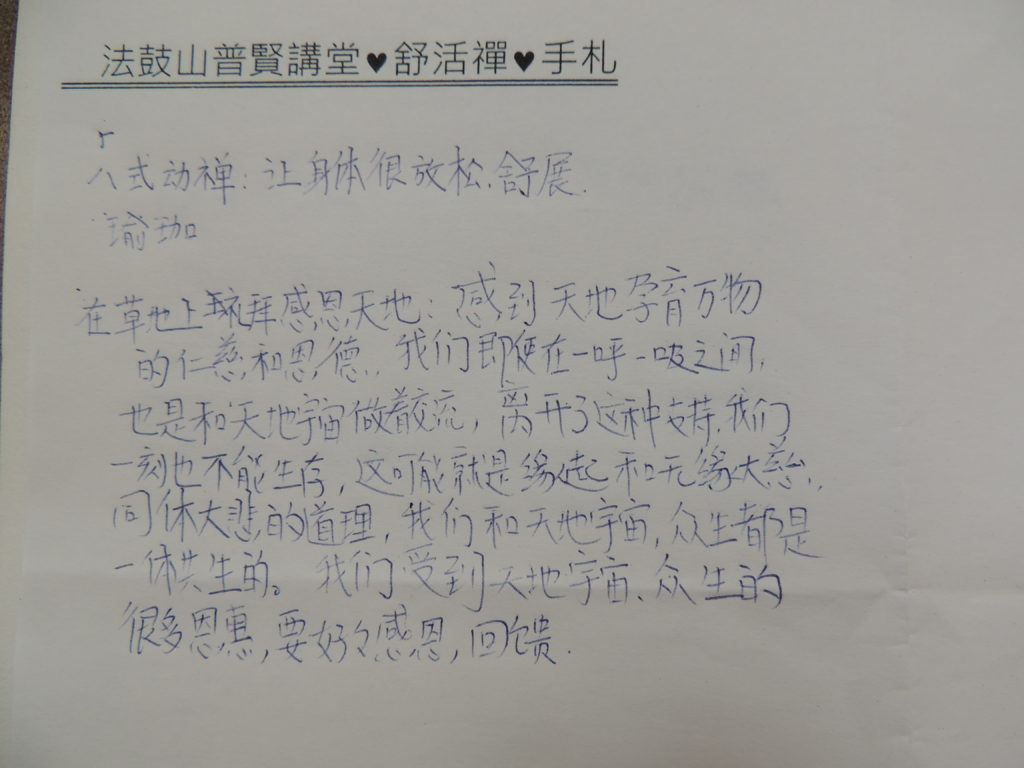 法鼓山普賢講堂♥舒活禪♥手札
八式动禅:让身体很放松.舒展.
瑜珈
在草地上 拜感恩天地:感到天地孕育万物
的仁慈和恩德.我们即使在一呼一吸之间,
也是和天地宇宙做着交流,离开了这种支持,我们
一刻也不能生存,这可能就是缘起和无缘大慈.,
同体大悲的道理,我们和天地宇宙,众生都是
一体共生的。我们受到天地宇宙、众生的
很多恩惠,要好々感恩,回馈.